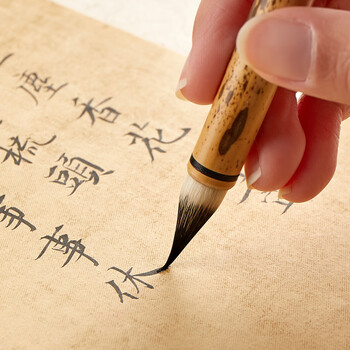 塵香花
梳頭
事事休